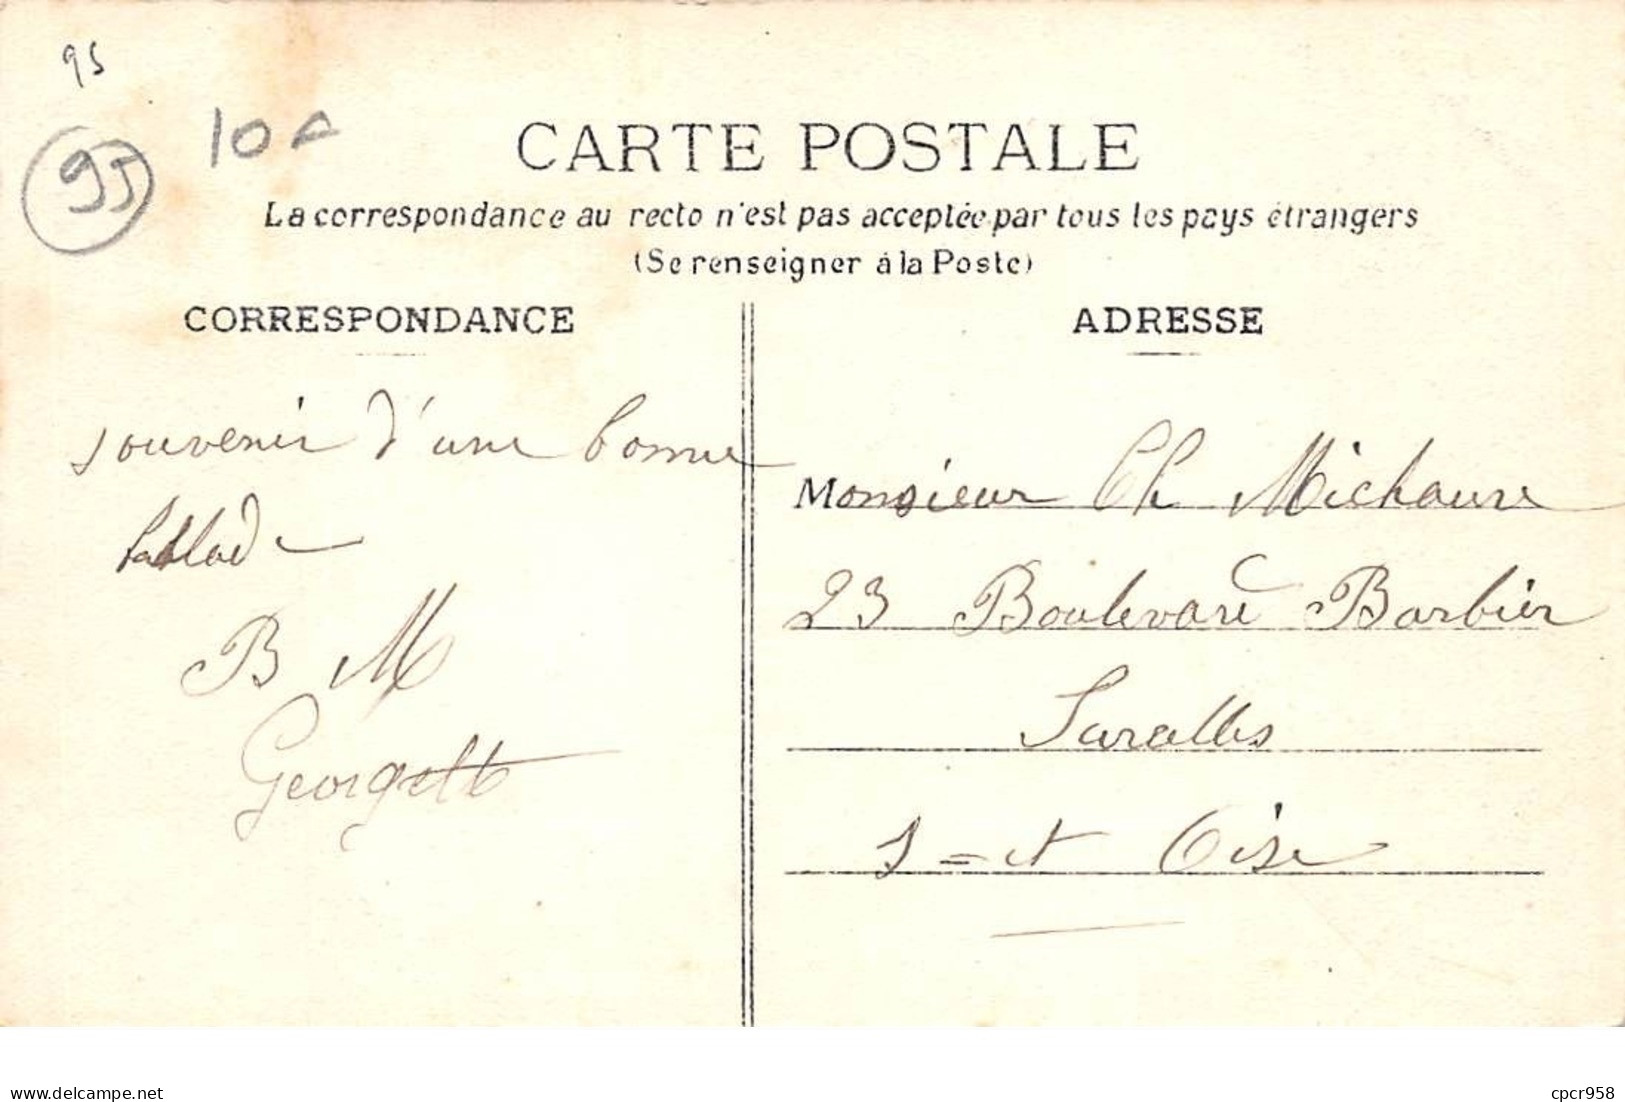 95
95
CARTE POSTALE
La correspondance au recto n'est pas acceptée par tous les pays étrangers
(Se renseigner à la Poste)
CORRESPONDANCE
souvenir d'une bonne
ballade
B M
Georgette
ADRESSE
Monsieur Ch Michaure
23 Boulevard Barbier
Sarcelles
S = et Oise
www.delcampe.net
cpcr958